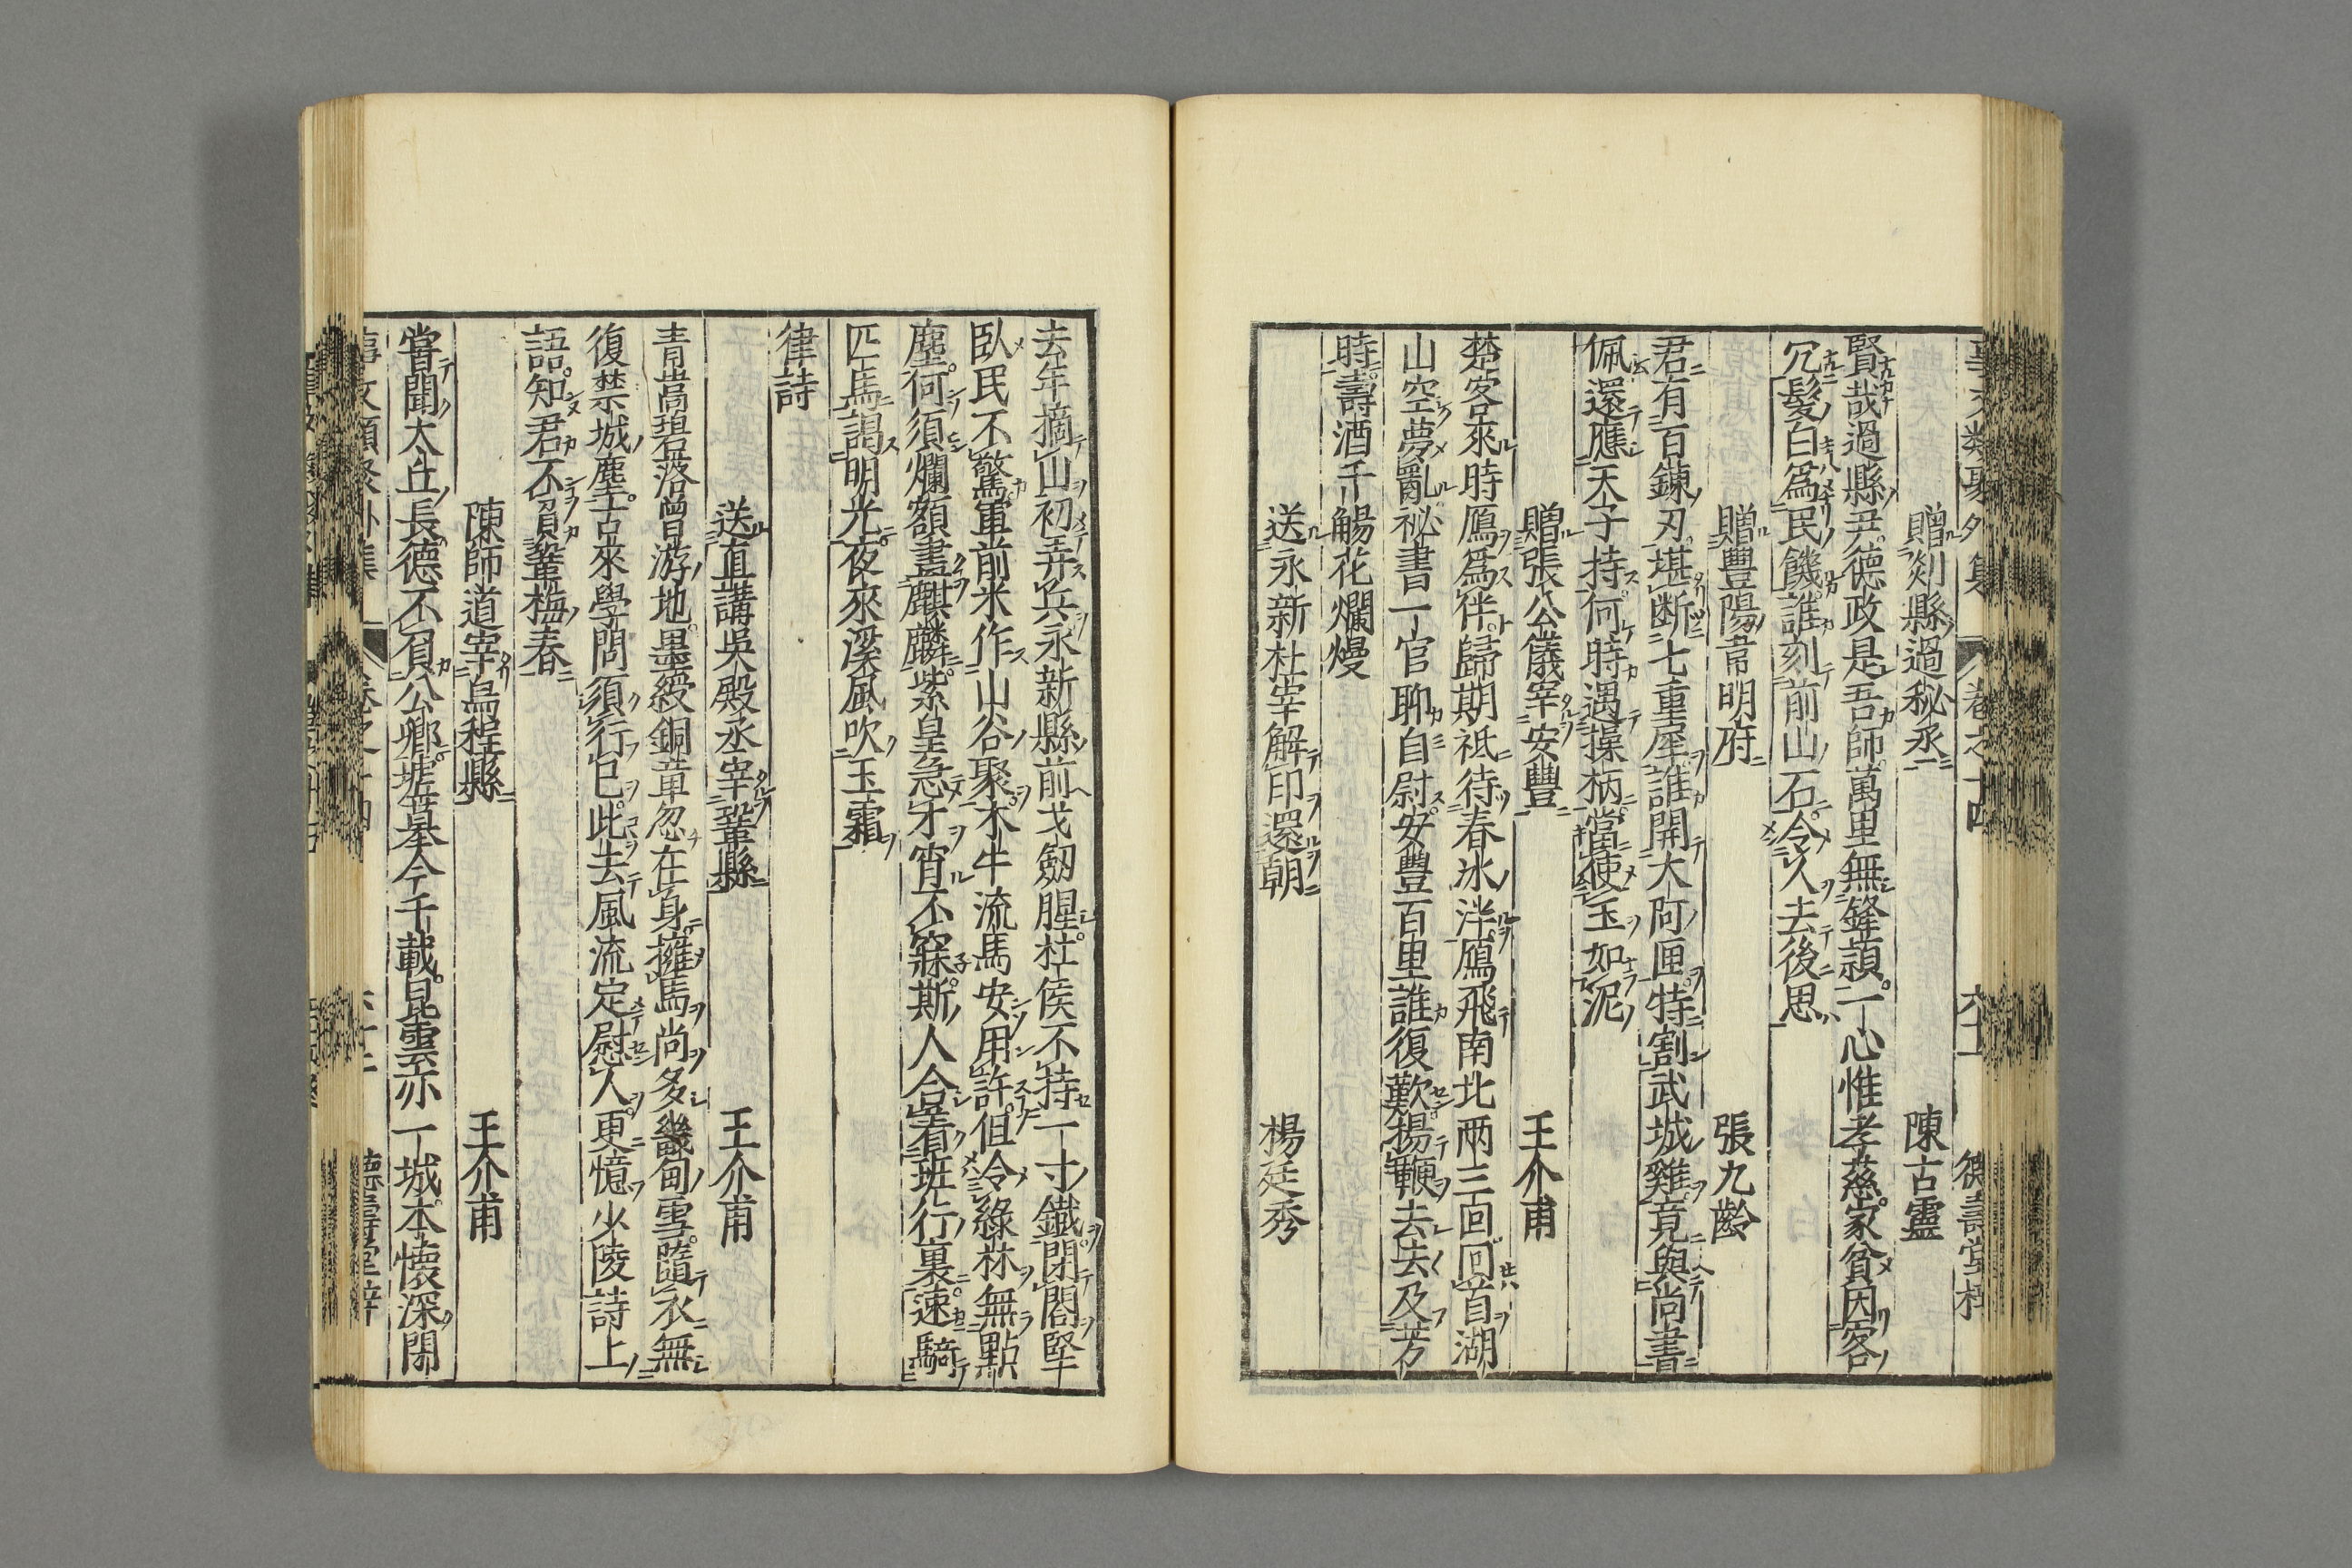 事文類聚外集 卷之十四 六十一 德壽堂梓
贈剡縣過秘丞 陳古靈
賢哉過縣尹德政是吾師萬里無鋒頴一心惟孝慈家貧因客
冗髮白爲民饑誰刻前山石令人去後思
贈豐陽韋明府 張九齡
君有百錬刃堪斷七重犀誰開太阿匣特割武城雞竟與尚書
佩還應天子持何時遇操柄當使玉如泥
贈張公儀宰安豐 王介甫
楚客來時鴈爲伴歸期祗待春冰泮鴈飛南北兩三回回首湖
山空夢亂祕書一官聊自尉安豐百里誰復歎揚鞭去去及芳
時壽酒千觴花爛熳
送永新杜宰解印還朝 楊廷秀
去年摘山初弄兵永新縣前戈劒腥杜侯不持一寸鐵閉閤堅
臥民不驚軍前米作山谷聚木牛流馬安用許但令綠林無點
塵何須爛額畫麒麟紫皇急才宵不寐斯人合著班行裏速騎
匹馬謁明光夜來溪風吹玉霜
律詩
送直講吳殿丞宰鞏縣 王介甫
青嵩碧落曾游地墨綬銅章忽在身擁馬尚多畿甸雪隨衣無
復禁城塵古來學問須行已此去風流定慰人更憶少陵詩上
語知君不負鞏梅春
陳師道宰烏程縣 王介甫
嘗聞太丘長德不負公卿墟墓今千載昆雲亦一城本懷深閉
事文類聚外集 卷之十四 六十二 德壽堂梓